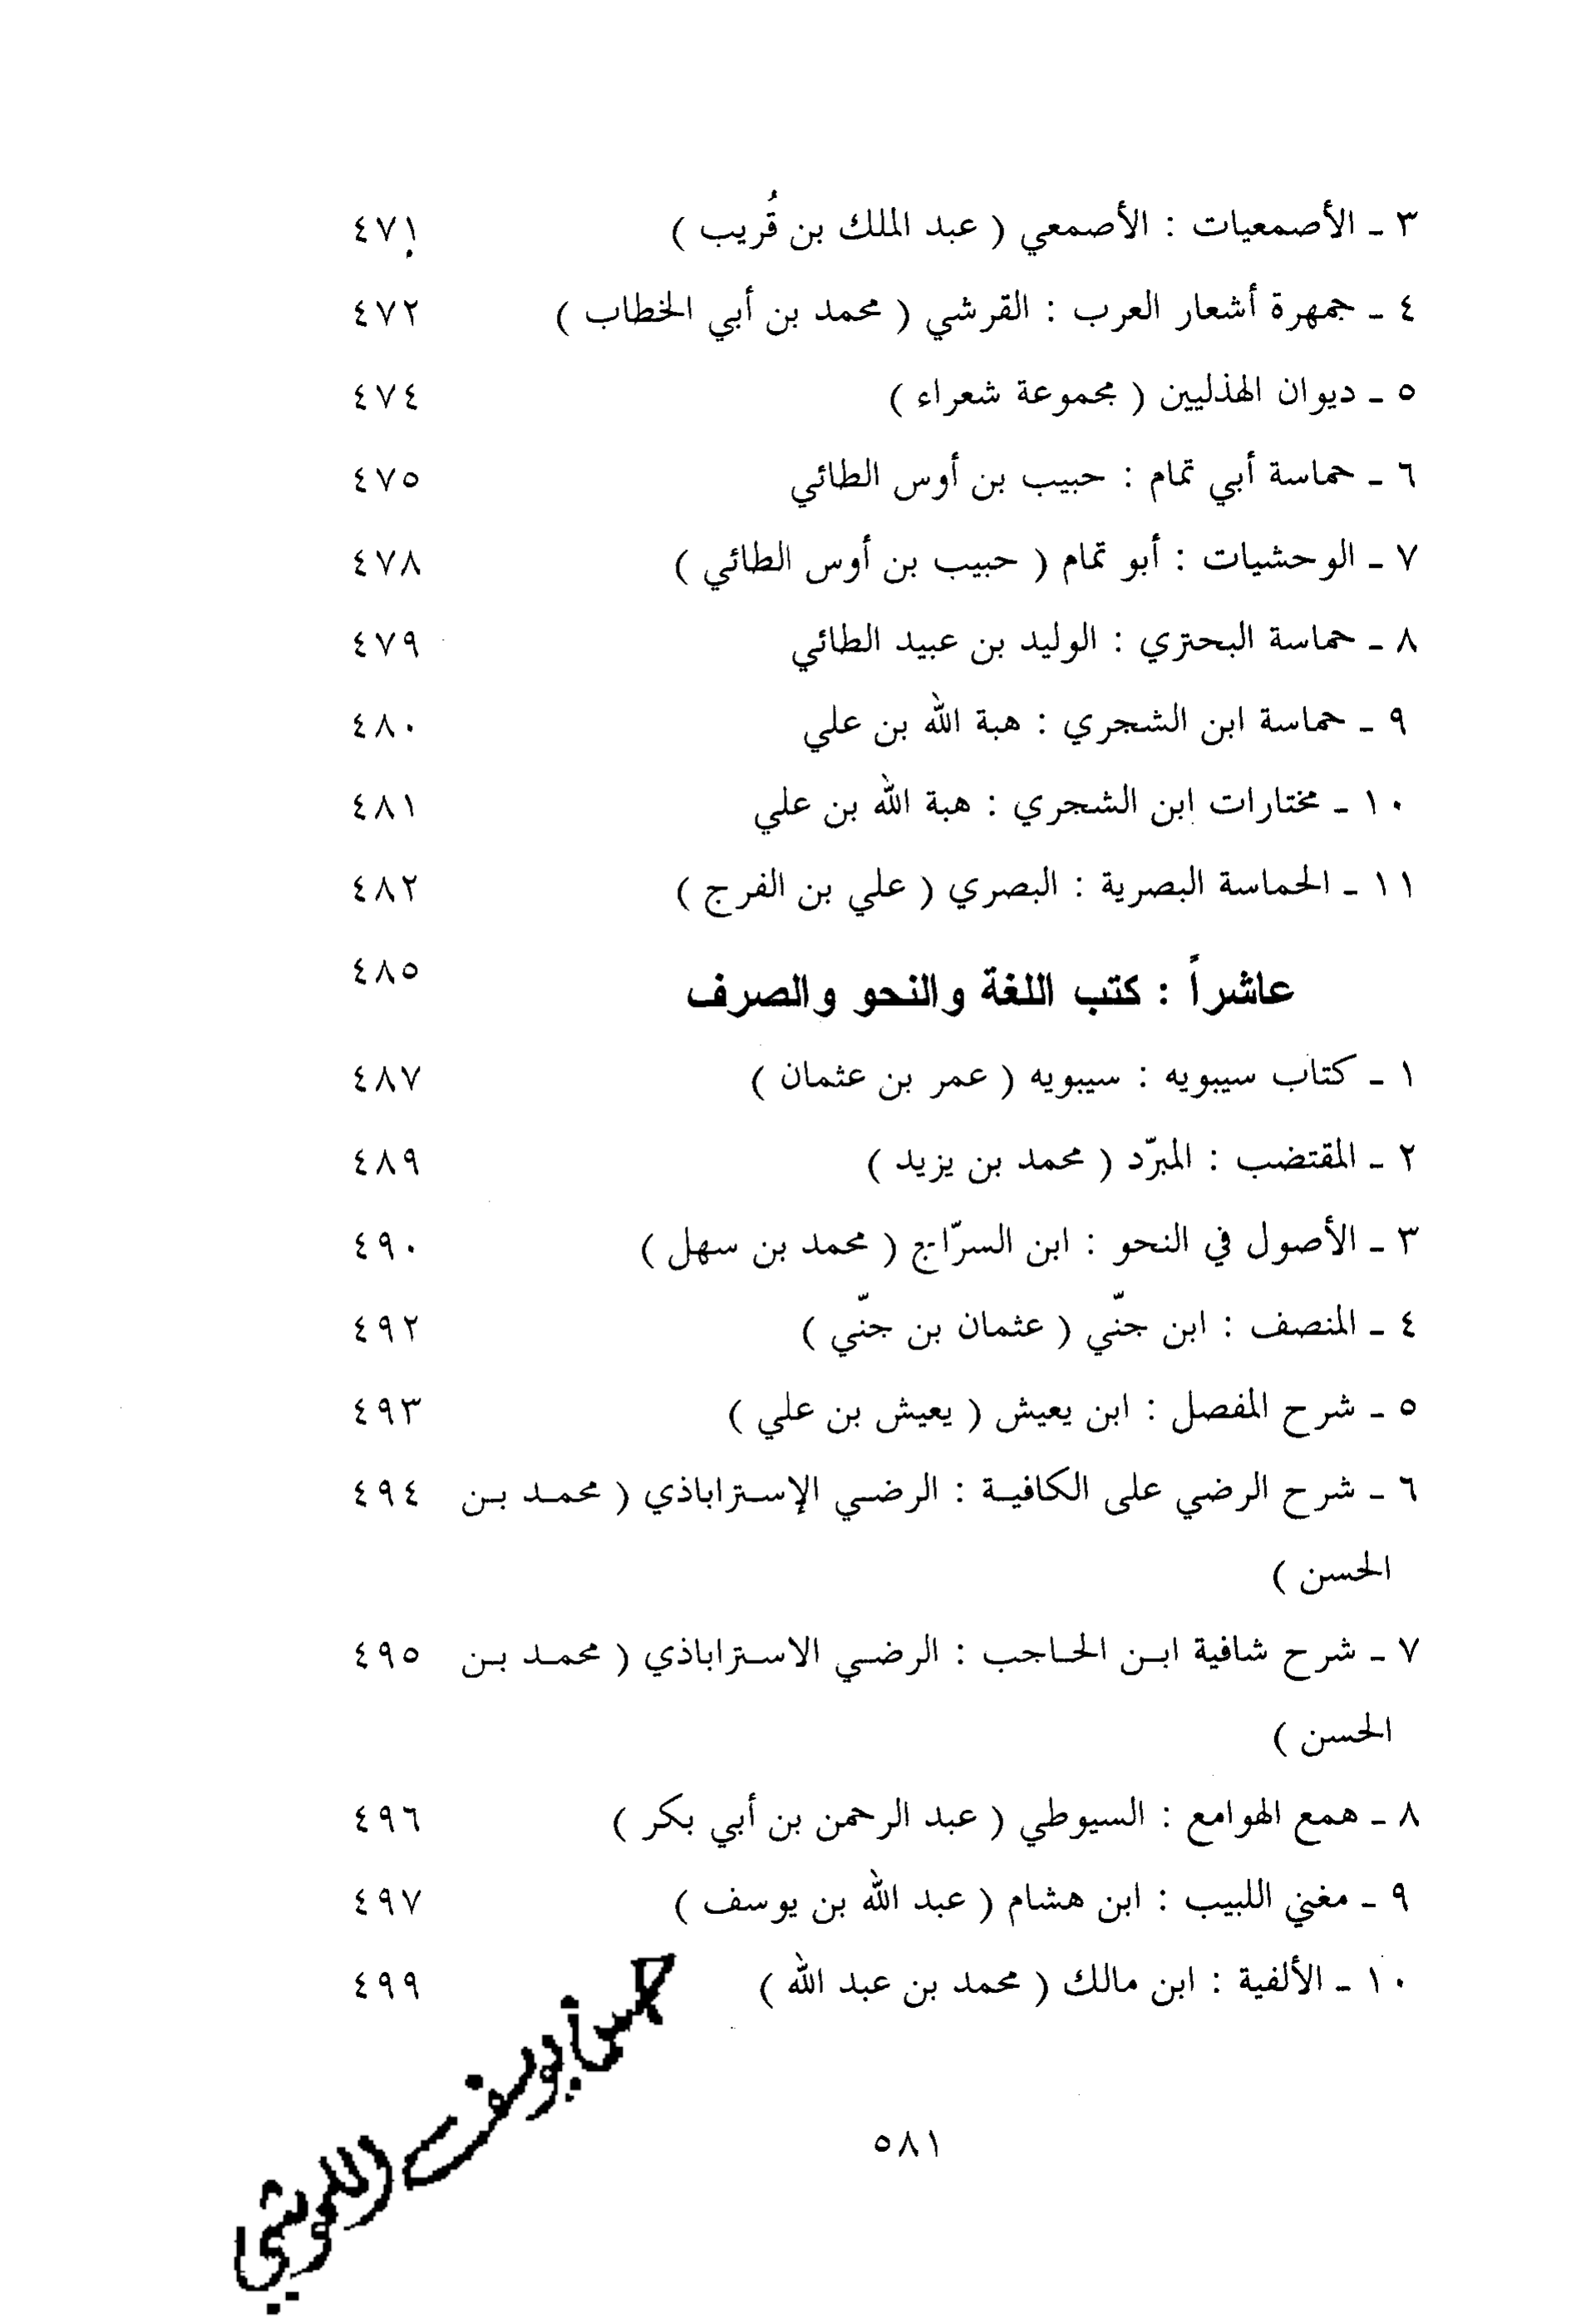 ٣ ـ الأصمعيات : الأصمعي ( عبد الملك بن قُريب ) ٤٧١
٤ ـ جمهرة أشعار العرب : القرشي ( محمد بن أبي الخطاب ) ٤٧٢
٥ ـ ديوان الهذليين ( مجموعة شعراء ) ٤٧٤
٦ ـ حماسة أبي تمام : حبيب بن أوس الطائي ٤٧٥
٧ ـ الوحشيات : أبو تمام ( حبيب بن أوس الطائي ) ٤٧٨
٨ ـ حماسة البحتري : الوليد بن عبيد الطائي ٤٧٩
٩ ـ حماسة ابن الشجري : هبة الله بن علي ٤٨٠
١٠ ـ مختارات ابن الشجري : هبة الله بن علي ٤٨١
١١ ـ الحماسة البصرية : البصري ( علي بن الفرج ) ٤٨٢
عاشراً : كتب اللغة والنحو والصرف ٤٨٥
١ ـ كتاب سيبويه : سيبويه ( عمر بن عثمان ) ٤٨٧
٢ ـ المقتضب : المبرّد ( محمد بن يزيد ) ٤٨٩
٣ ـ الأصول في النحو : ابن السرّاج ( محمد بن سهل ) ٤٩٠
٤ ـ المنصف : ابن جنّي ( عثمان بن جنّي ) ٤٩٢
٥ ـ شرح المفصل : ابن يعيش ( يعيش بن علي ) ٤٩٣
٦ ـ شرح الرضي على الكافية : الرضي الإستراباذي ( محمد بن ٤٩٤
الحسن )
٧ ـ شرح شافية ابن الحاجب : الرضي الاستراباذي ( محمد بن ٤٩٥
الحسن )
٨ ـ همع الهوامع : السيوطي ( عبد الرحمن بن أبي بكر ) ٤٩٦
٩ ـ مغني اللبيب : ابن هشام ( عبد الله بن يوسف ) ٤٩٧
١٠ ـ الألفية : ابن مالك ( محمد بن عبد الله ) ٤٩٩
٥٨١